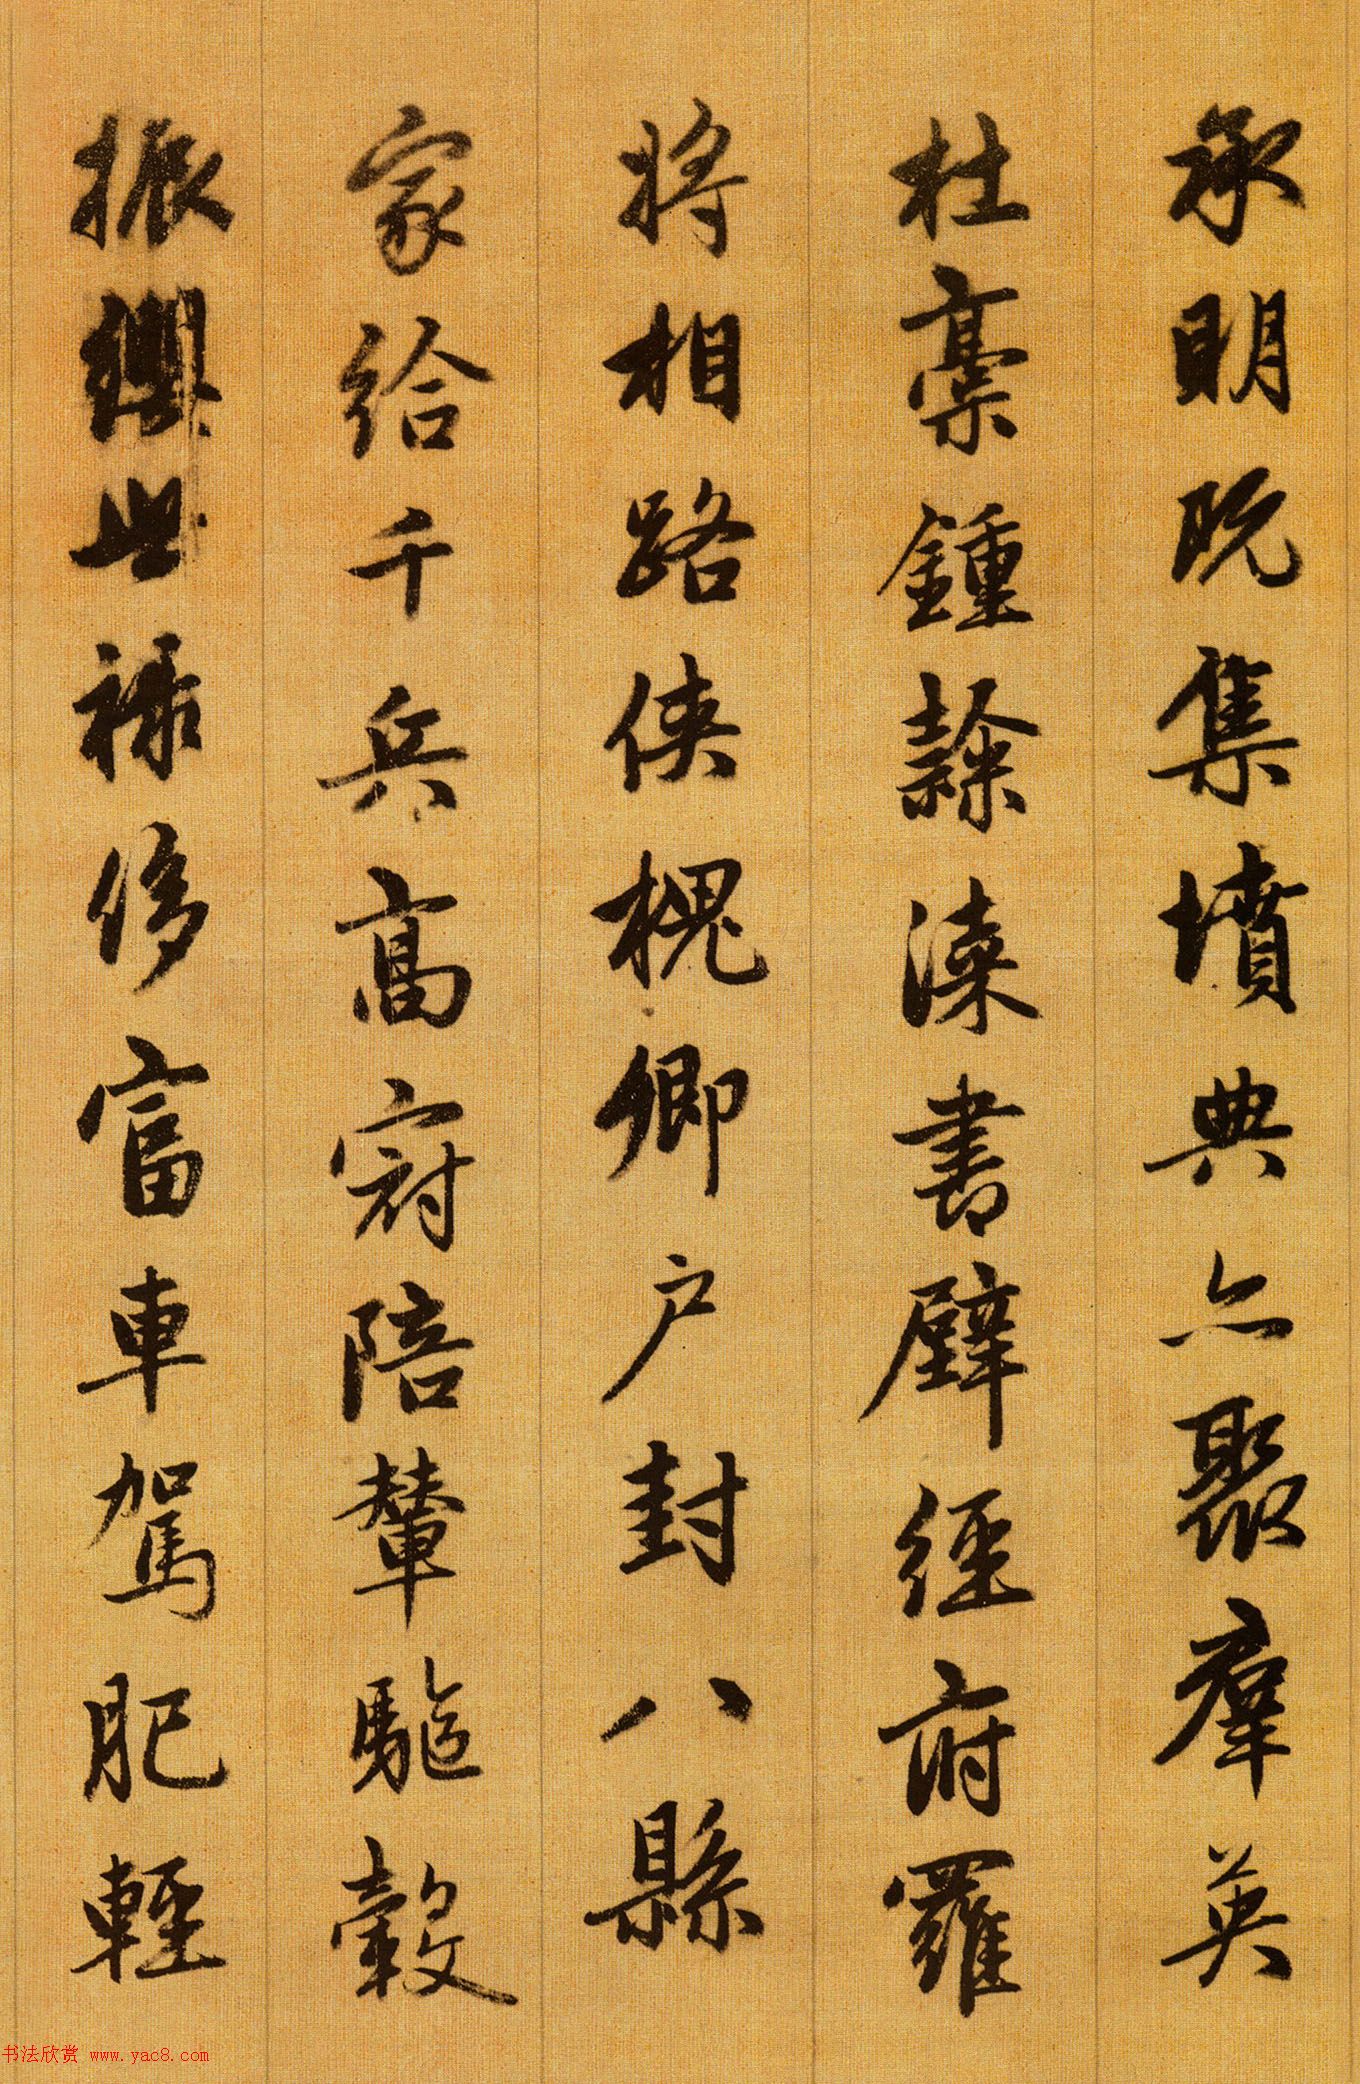 承明既集墳典亦聚羣英
杜稾鍾隸漆書壁經府羅
將相路俠槐卿户封八縣
家給千兵高冠陪輦驅轂
振纓世祿侈富車駕肥輕
书法欣赏 www.yac8.com